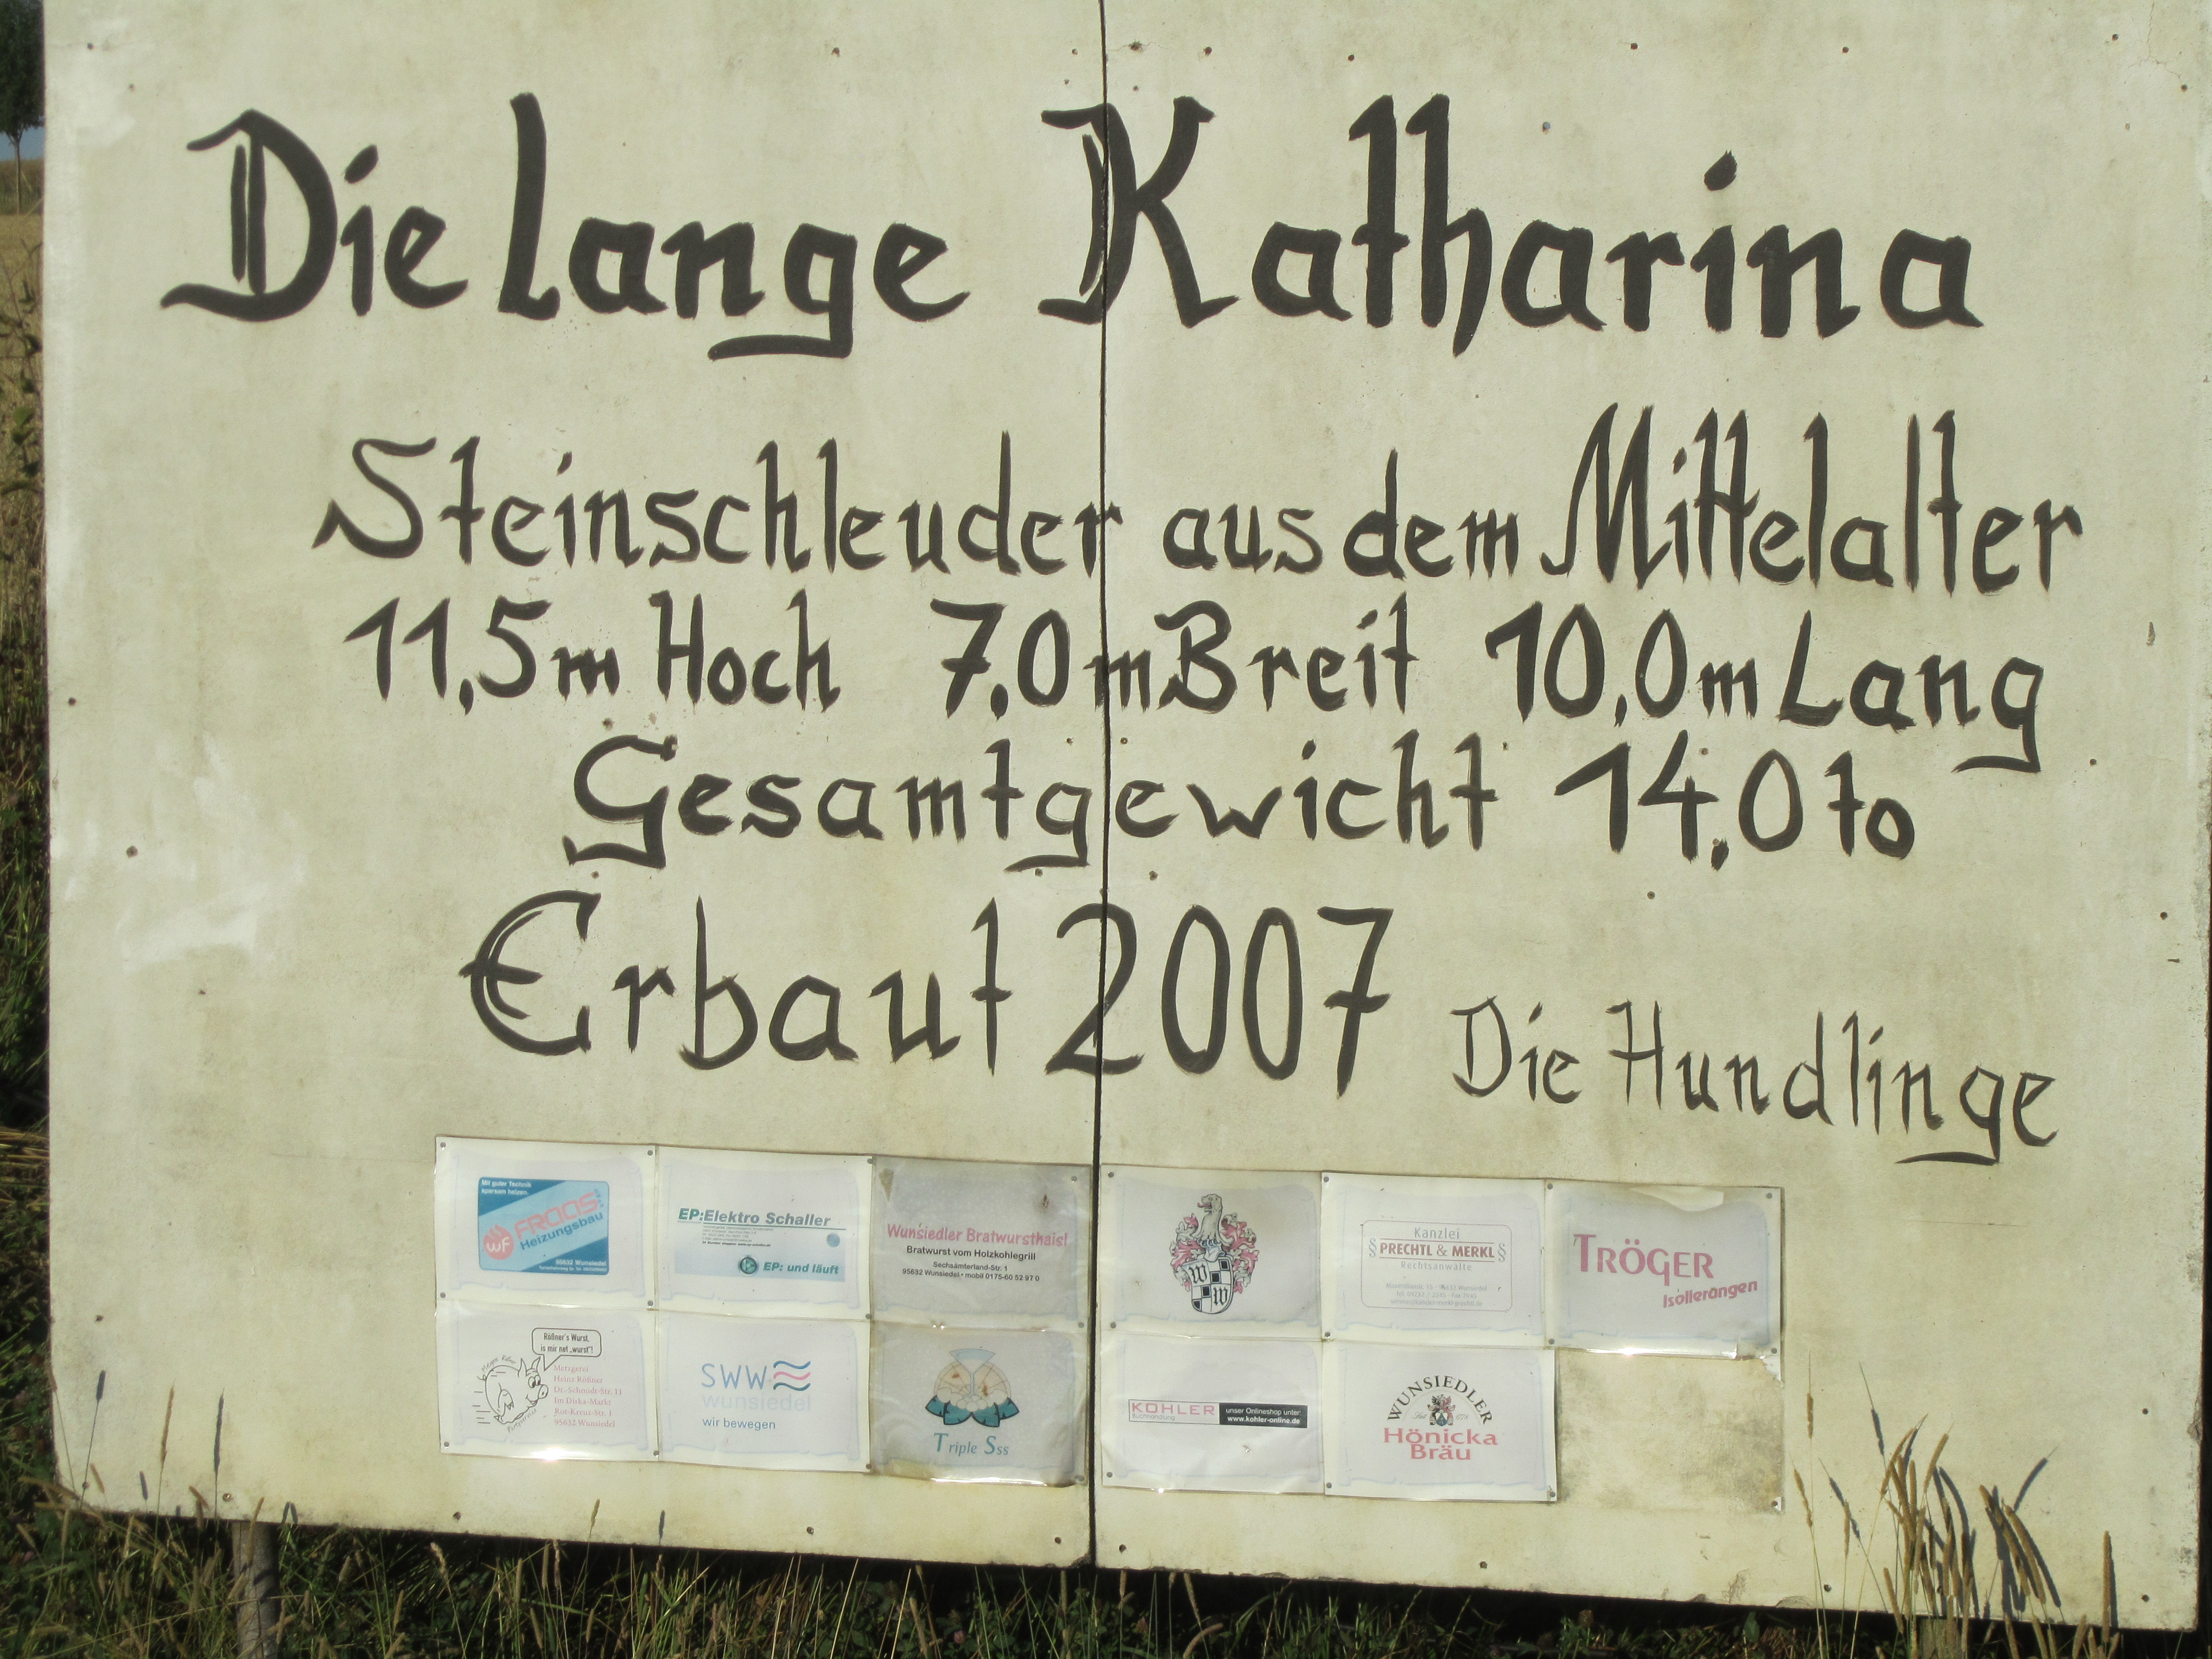 Die lange Katharina
Steinschleuder aus dem Mittelalter
11,5m Hoch 7,0m Breit 10,0m Lang
Gesamtgewicht 14,0 to
Erbaut 2007
Die Hundlinge
Mit guter Technik
sparsam heizen.
WF FRAAS
Heizungsbau
95632 Wunsiedel
EP:Elektro Schaller
EP: und läuft
Wunsiedler Bratwursthaisl
Bratwurst vom Holzkohlegrill
Sechsämterland-Str. 1
95632 Wunsiedel • mobil 0175-60 52 97 0
W
W
Kanzlei
§ PRECHTL & MERKL §
Rechtsanwälte
TRÖGER
Isolierungen
Rößner's Wurst,
is mir net „wurst"!
Metzgerei
Heinz Rößner
Dr.-Schmidt-Str. 11
Im Dirka-Markt
Rot-Kreuz-Str. 1
95632 Wunsiedel
SWW
wunsiedel
wir bewegen
Triple Sss
KOHLER
Buchhandlung
unser Onlineshop unter:
www.kohler-online.de
WUNSIEDLER
Hönicka
Bräu